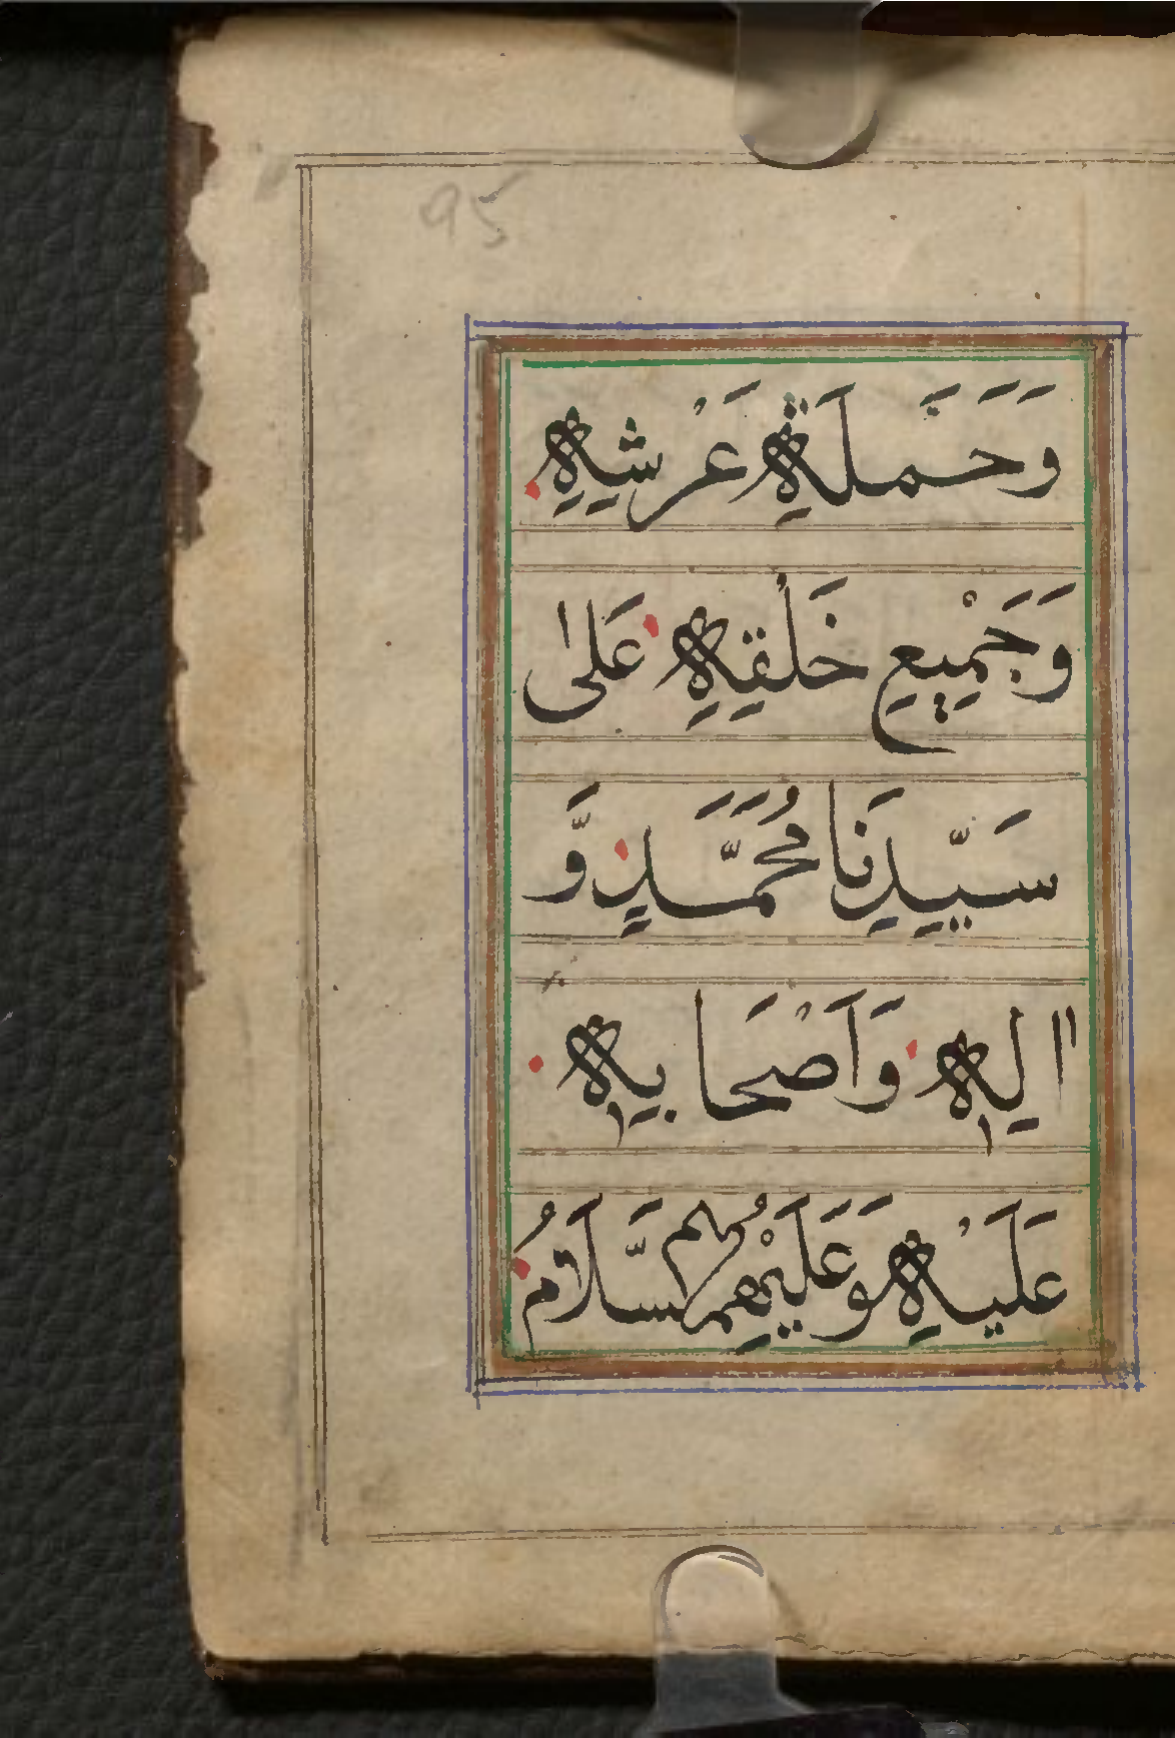 95
وَحَمَلَةِ عَرْشِهِ
وَجَمِيْعِ خَلْقِهِ عَلىٰ
سَيِّدِنَا مُحَمَّدٍ وَّ
اٰلِهٖ وَاَصْحَابِهٖ
عَلَيْهِ وَعَلَيْهِمُ السَّلَامُ